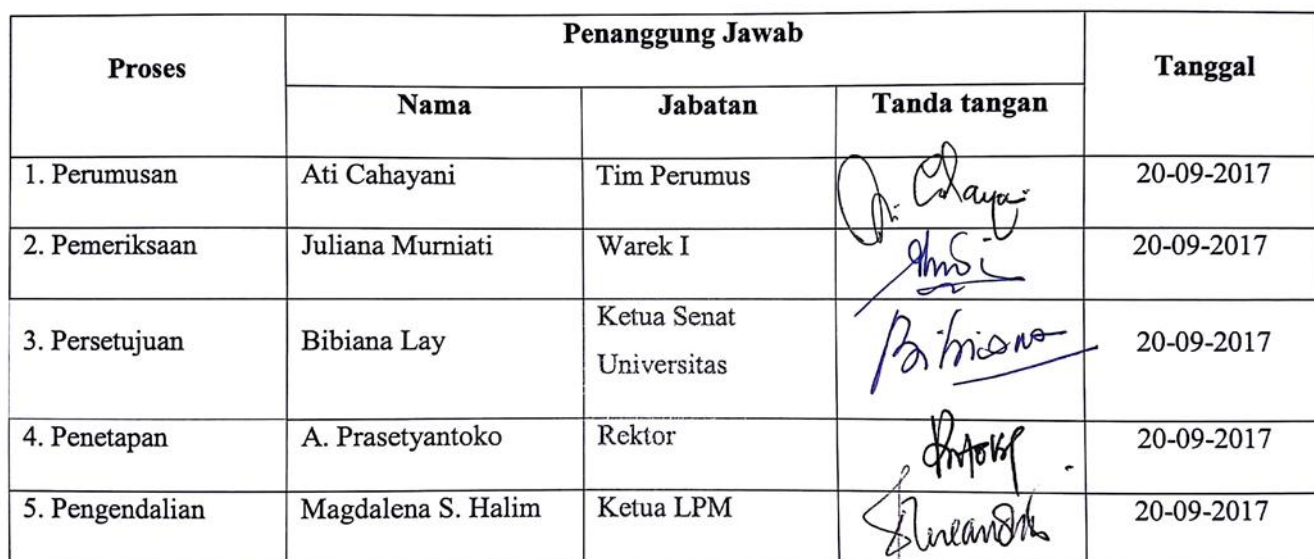 Proses Penanggung Jawab Tanggal
Nama Jabatan Tanda tangan
1. Perumusan Ati Cahayani Tim Perumus 20-09-2017
2. Pemeriksaan Juliana Murniati Warek I 20-09-2017
3. Persetujuan Bibiana Lay Ketua Senat Universitas Bibiana 20-09-2017
4. Penetapan A. Prasetyantoko Rektor 20-09-2017
5. Pengendalian Magdalena S. Halim Ketua LPM 20-09-2017